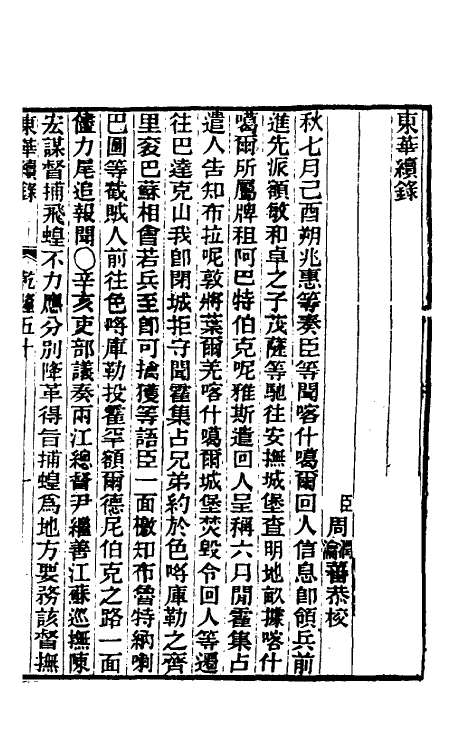 東華續錄
臣周潤蕃瀹蕃恭校
秋七月己酉朔兆惠等奏臣等聞喀什噶爾回人信息卽領兵前
進先派額敏和卓之子茂薩等馳往安撫城堡查明地畝據喀什
噶爾所屬牌租阿巴特伯克呢雅斯遣回人呈稱六月聞霍集占
遣人告知布拉呢敦將葉爾羌喀什噶爾城堡焚毀令回人等遷
往巴達克山我卽閉城拒守聞霍集占兄弟約於色哷庫勒之齊
里袞巴蘇相會若兵至卽可擒獲等語臣一面檄知布魯特納喇
巴圖等截賊人前往色哷庫勒投霍罕額爾德尼伯克之路一面
儘力尾追報聞○辛亥吏部議奏兩江總督尹繼善江蘇巡撫陳
宏謀督捕飛蝗不力應分別降革得旨捕蝗爲地方要務該督撫
東華續錄 乾隆五十